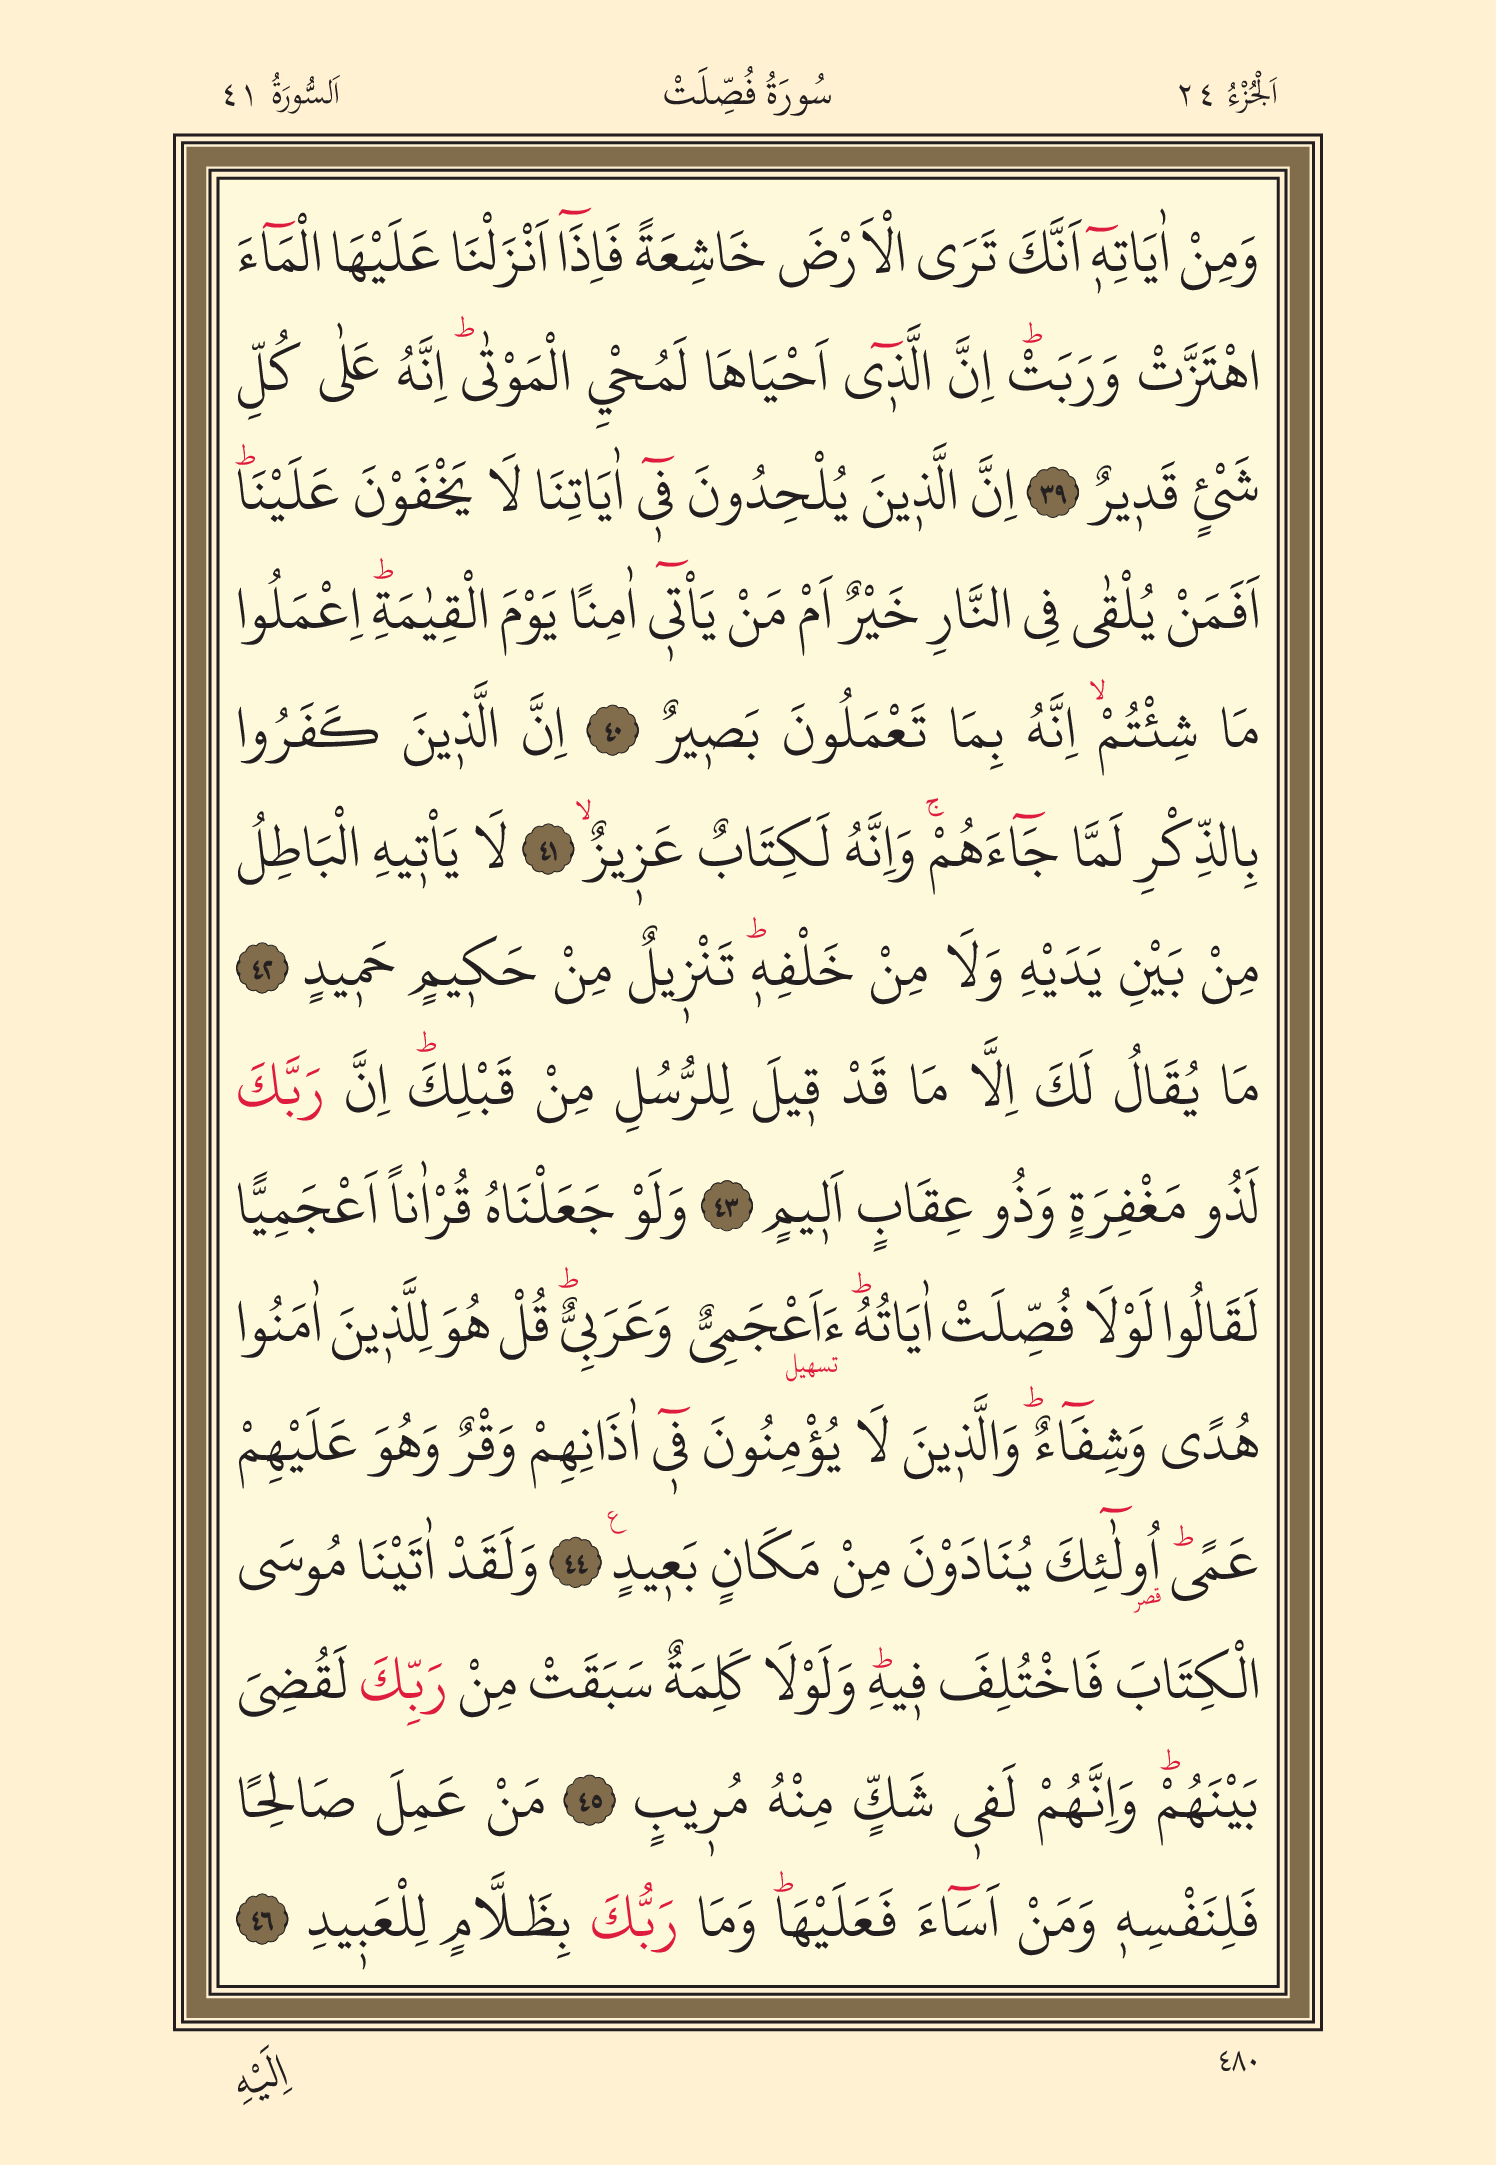 اَلْجُزْءُ ٢٤ سُورَةُ فُصِّلَتْ اَلسُّورَةُ ٤١
وَمِنْ اٰيَاتِه۪ٓ اَنَّكَ تَرَى الْاَرْضَ خَاشِعَةً فَاِذَٓا اَنْزَلْنَا عَلَيْهَا الْمَٓاءَ
اهْتَزَّتْ وَرَبَتْۜ اِنَّ الَّذ۪ٓي اَحْيَاهَا لَمُحْيِ الْمَوْتٰىۜ اِنَّهُ عَلٰى كُلِّ
شَيْئٍ قَد۪يرٌ ﴿٣٩﴾ اِنَّ الَّذ۪ينَ يُلْحِدُونَ ف۪ٓي اٰيَاتِنَا لَا يَخْفَوْنَ عَلَيْنَاۜ
اَفَمَنْ يُلْقٰى فِي النَّارِ خَيْرٌ اَمْ مَنْ يَأْت۪ٓي اٰمِنًا يَوْمَ الْقِيٰمَةِۜ اِعْمَلُوا
مَا شِئْتُمْۙ اِنَّهُ بِمَا تَعْمَلُونَ بَص۪يرٌ ﴿٤٠﴾ اِنَّ الَّذ۪ينَ كَفَرُوا
بِالذِّكْرِ لَمَّا جَٓاءَهُمْۚ وَاِنَّهُ لَكِتَابٌ عَز۪يزٌۙ ﴿٤١﴾ لَا يَأْت۪يهِ الْبَاطِلُ
مِنْ بَيْنِ يَدَيْهِ وَلَا مِنْ خَلْفِه۪ۜ تَنْز۪يلٌ مِنْ حَك۪يمٍ حَم۪يدٍ ﴿٤٢﴾
مَا يُقَالُ لَكَ اِلَّا مَا قَدْ ق۪يلَ لِلرُّسُلِ مِنْ قَبْلِكَۜ اِنَّ رَبَّكَ
لَذُو مَغْفِرَةٍ وَذُو عِقَابٍ اَل۪يمٍ ﴿٤٣﴾ وَلَوْ جَعَلْنَاهُ قُرْاٰناً اَعْجَمِيًّا
لَقَالُوا لَوْلَا فُصِّلَتْ اٰيَاتُهُۜ ءَاَعْجَمِيٌّ وَعَرَبِيٌّۜ قُلْ هُوَ لِلَّذ۪ينَ اٰمَنُوا
تسهيل
هُدًى وَشِفَٓاءٌۜ وَالَّذ۪ينَ لَا يُؤْمِنُونَ ف۪ٓي اٰذَانِهِمْ وَقْرٌ وَهُوَ عَلَيْهِمْ
عَمًىۜ اُو۬لٰٓئِكَ يُنَادَوْنَ مِنْ مَكَانٍ بَع۪يدٍ۟ ﴿٤٤﴾ وَلَقَدْ اٰتَيْنَا مُوسَى
قصر
الْكِتَابَ فَاخْتُلِفَ ف۪يهِۜ وَلَوْلَا كَلِمَةٌ سَبَقَتْ مِنْ رَبِّكَ لَقُضِيَ
بَيْنَهُمْۜ وَاِنَّهُمْ لَف۪ي شَكٍّ مِنْهُ مُر۪يبٍ ﴿٤٥﴾ مَنْ عَمِلَ صَالِحًا
فَلِنَفْسِه۪ وَمَنْ اَسَٓاءَ فَعَلَيْهَاۜ وَمَا رَبُّكَ بِظَلَّامٍ لِلْعَب۪يدِ ﴿٤٦﴾
٤٨٠ اِلَيْهِ